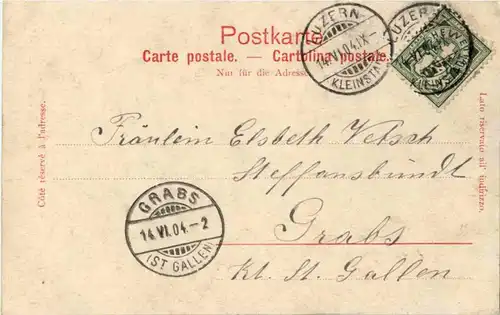 Postkarte
Carte postale. — Cartolina postale.
Nur für die Adresse.
LUZERN
14.VI.04.IX-
KLEINSTADT
LUZERN
KLEINSTADT
Côté réservé à l'adresse.
Lato riservato all' indirizzo.
Fräulein Elsbeth Vetsch
Steffansbündt
Grabs
Kt. St. Gallen
GRABS
14.VI.04.-2
(ST GALLEN)